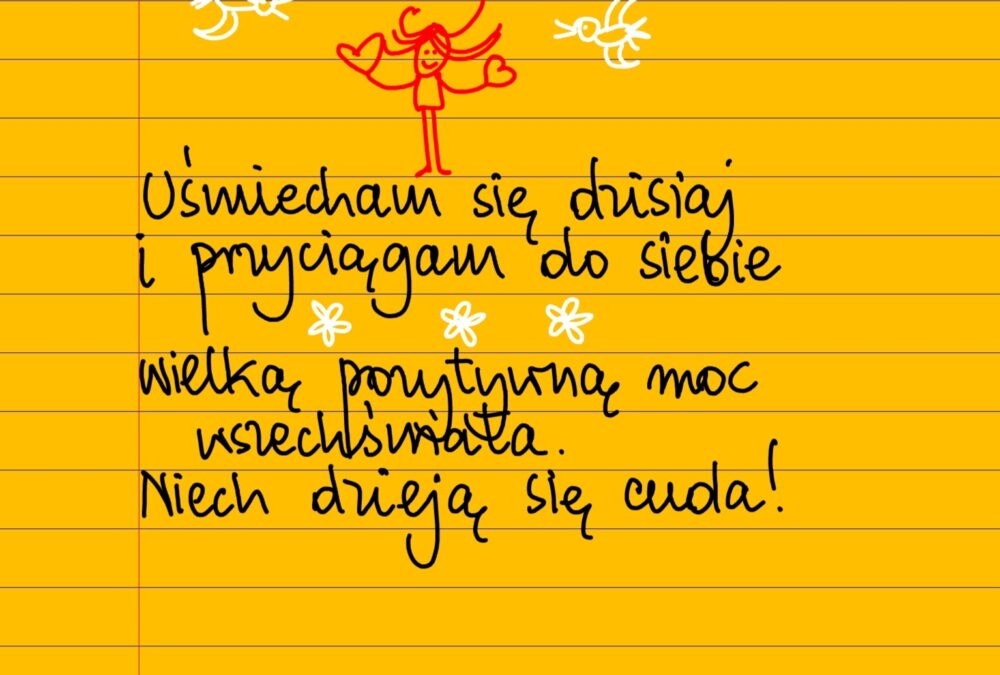 Uśmiecham się dzisiaj
i przyciągam do siebie
wielką pozytywną moc
wszechświata.
Niech dzieją się cuda!